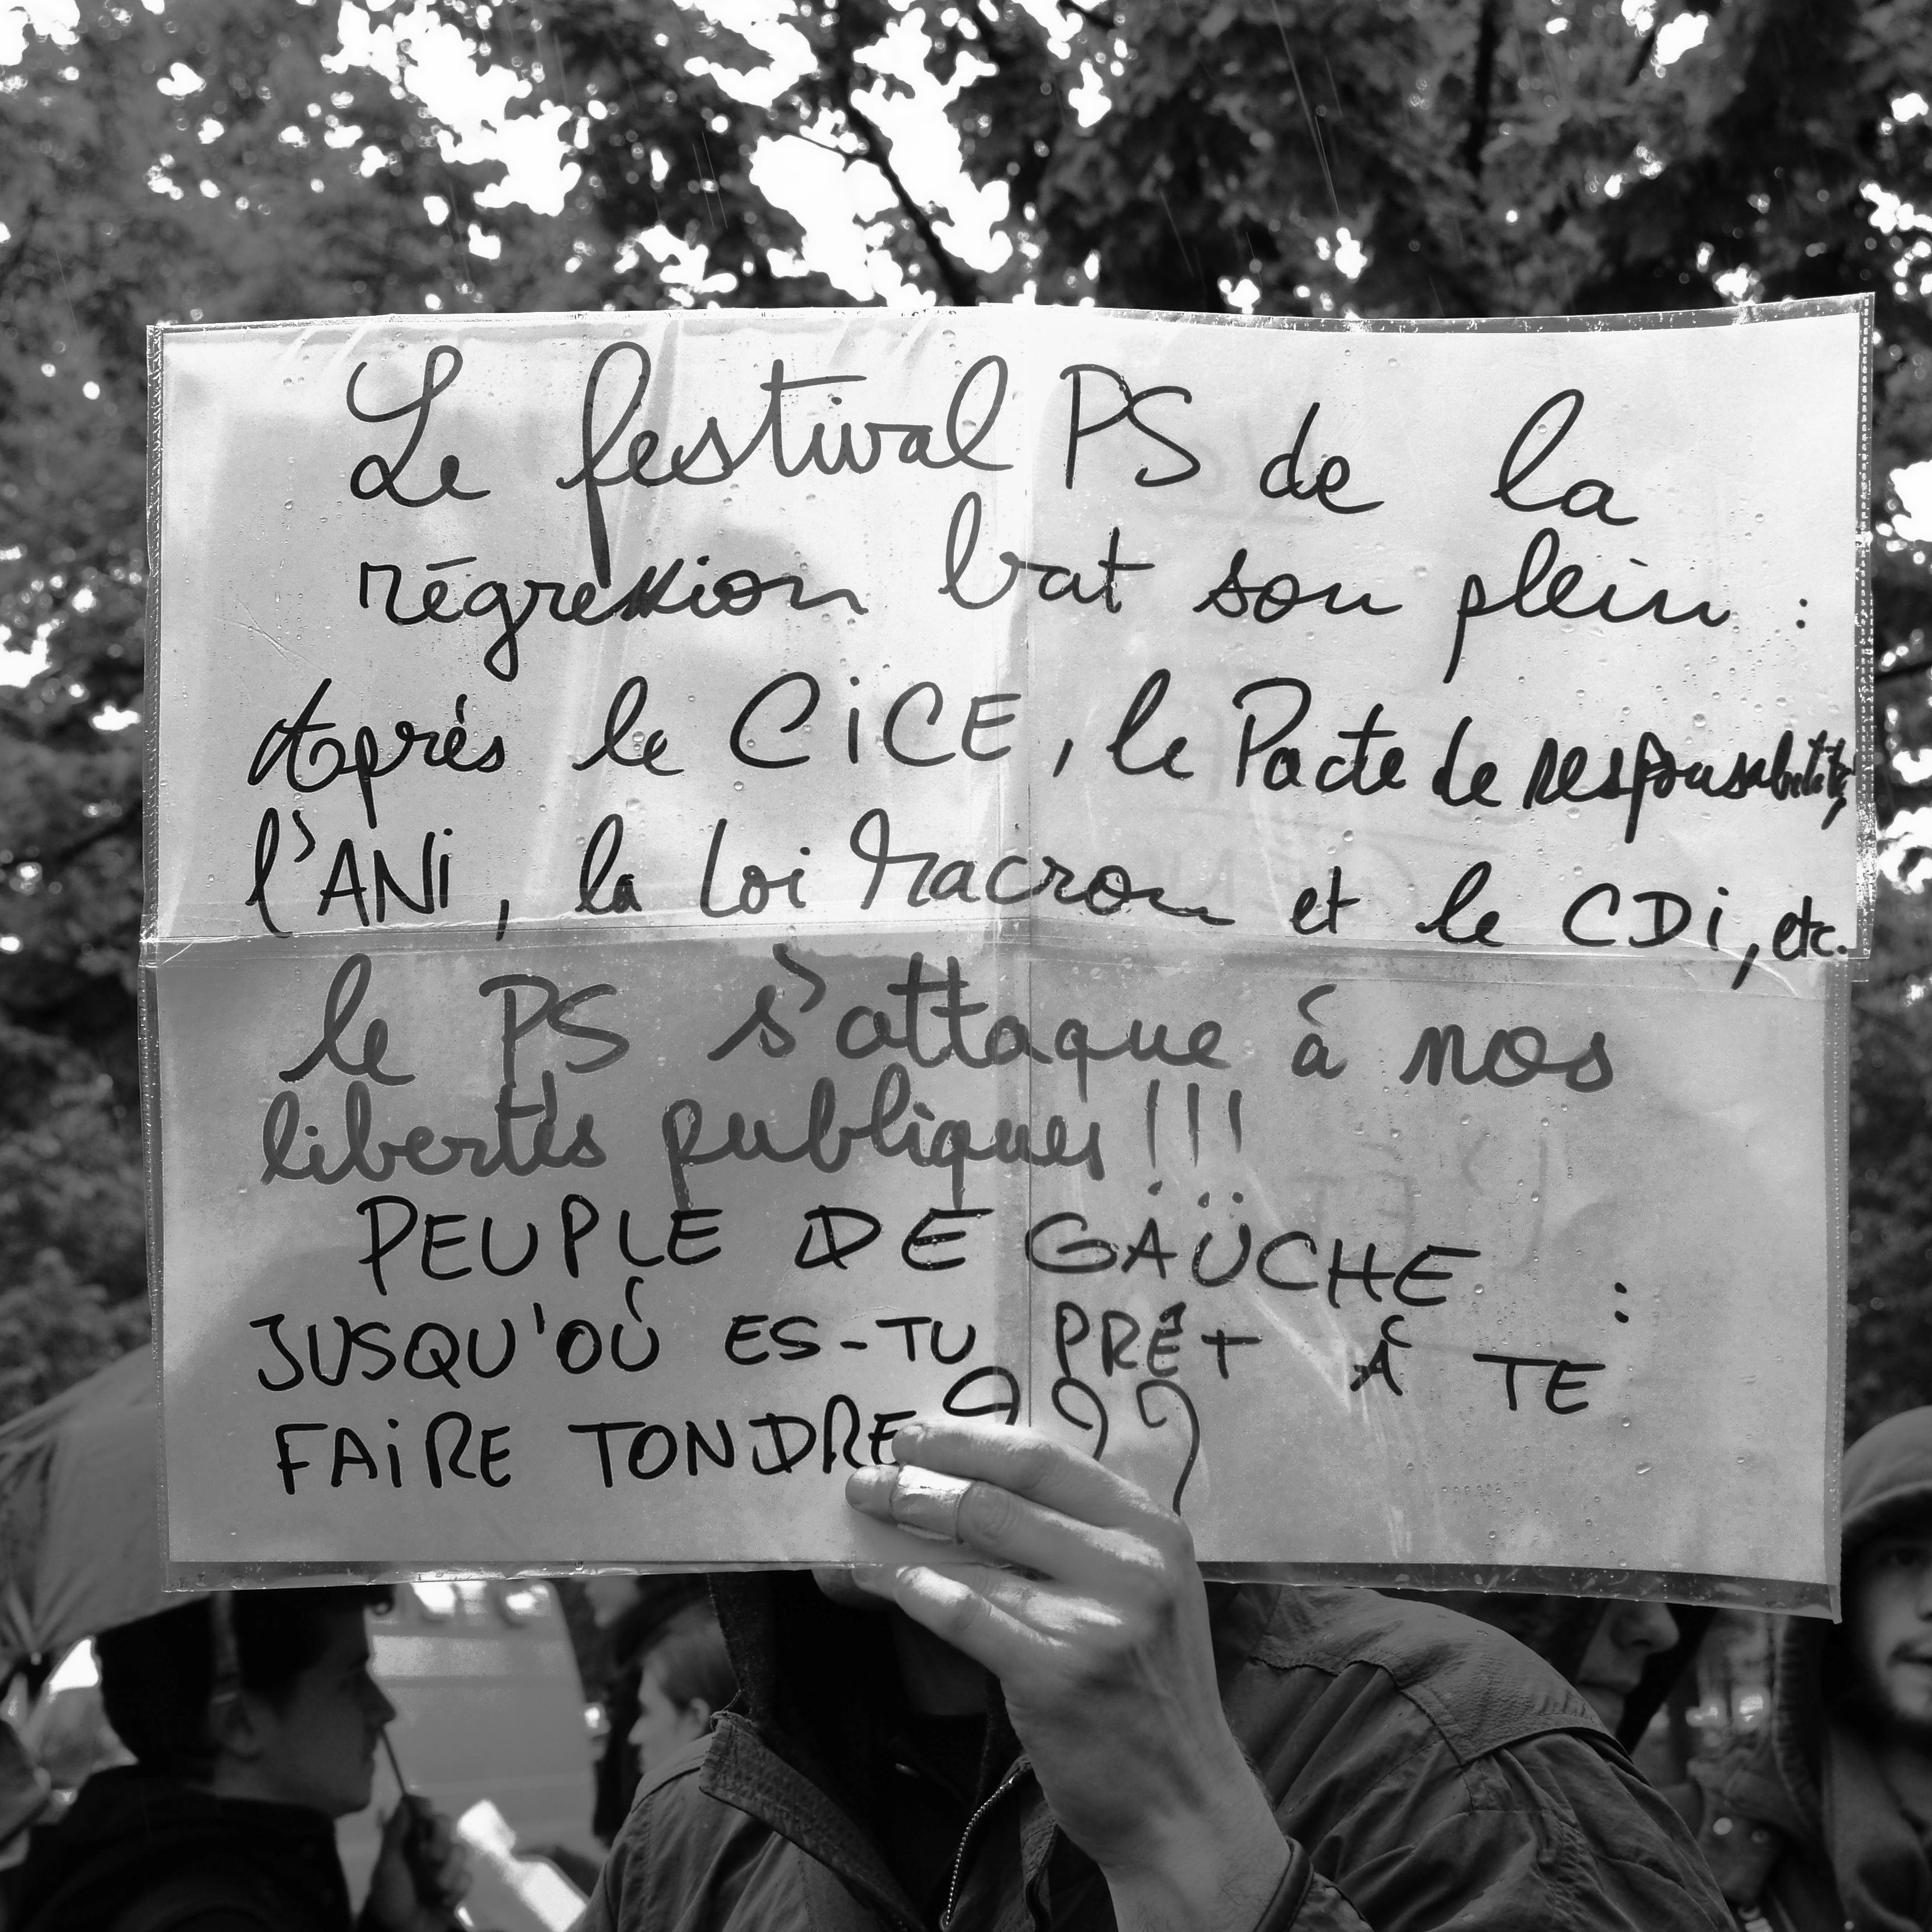 Le festival PS de la
régression bat son plein :
Après le CiCE, le Pacte de responsabilité,
l'ANi, la Loi Macron et le CDi, etc.
le PS s'attaque à nos
libertés publiques !!!
PEUPLE DE GAÜCHE :
JUSQU'OÙ ES-TU PRÊT À TE
FAiRE TONDRE ???